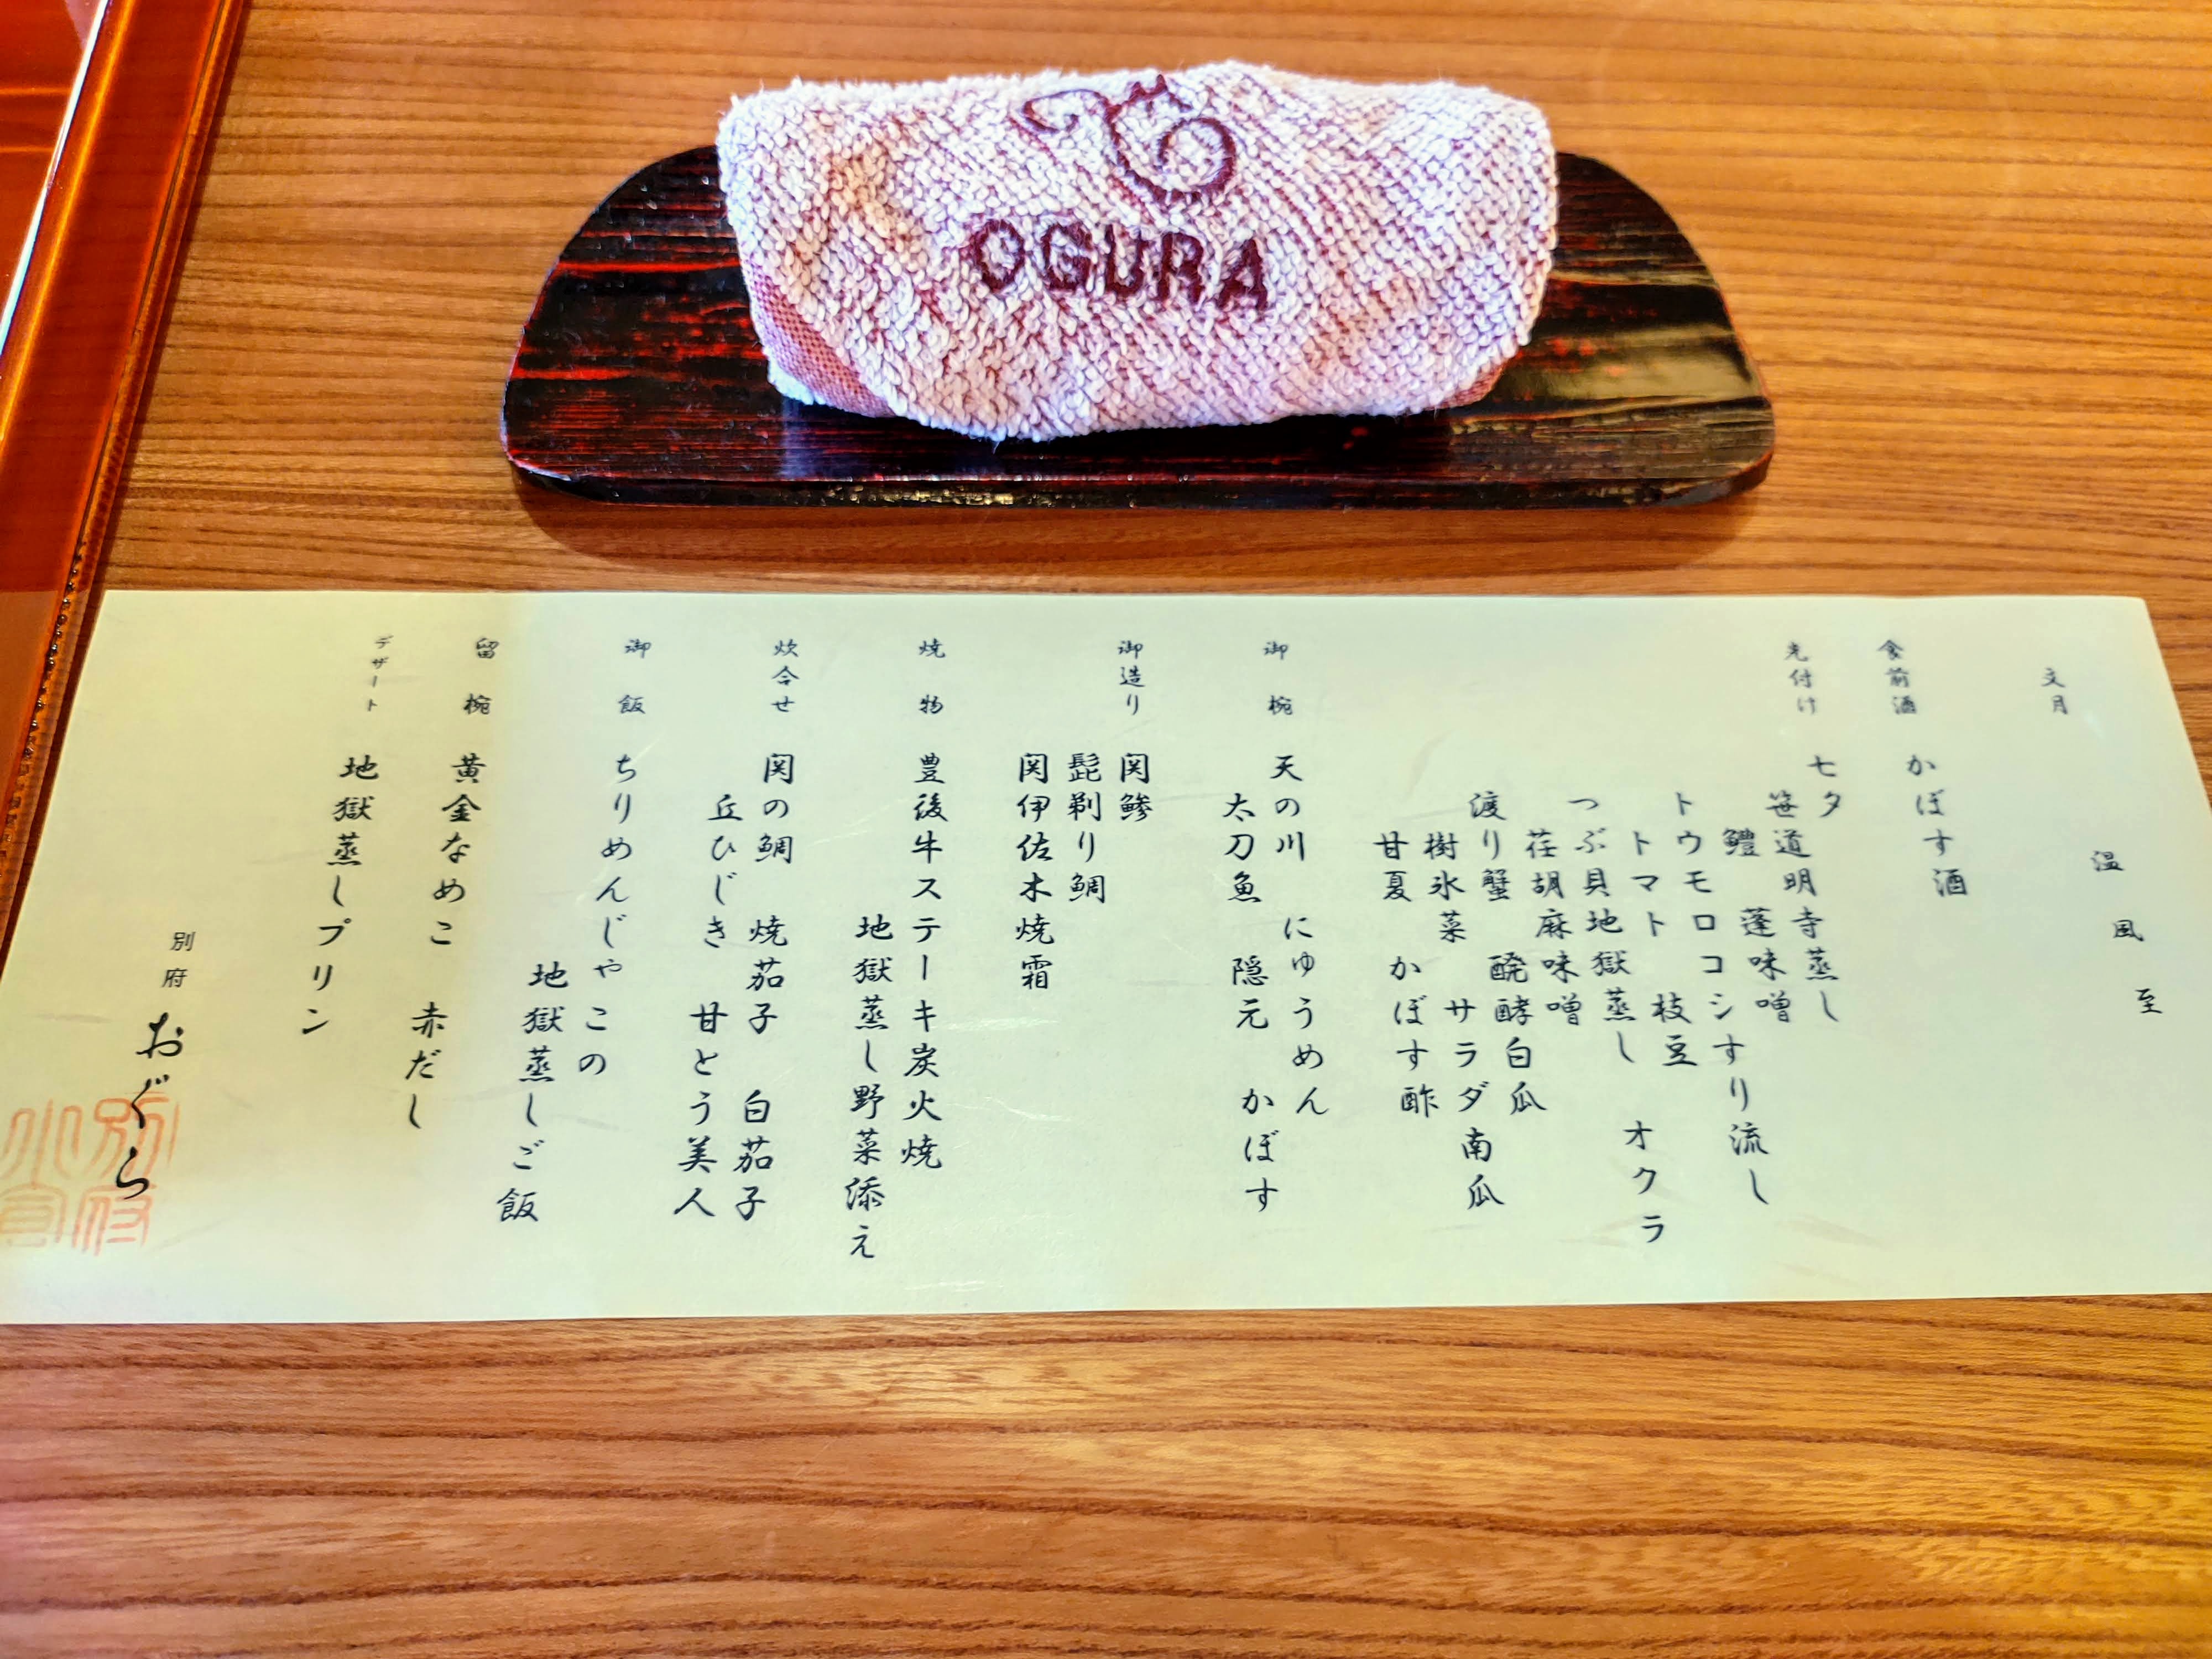 OGURA
温風至
文月
食前酒 かぼす酒
先付け 七夕
笹道明寺蒸し
鱧 蓬味噌
トウモロコシすり流し
トマト 枝豆 オクラ
つぶ貝地獄蒸し
荏胡麻味噌
渡り蟹 醗酵白瓜
樹氷菜 サラダ南瓜
甘夏 かぼす酢
御椀 天の川 にゅうめん
太刀魚 隠元 かぼす
御造り 関鯵
髭剃り鯛
関伊佐木焼霜
焼物 豊後牛ステーキ炭火焼
地獄蒸し野菜添え
炊合せ 関の鯛 焼茄子 白茄子
丘ひじき 甘とう美人
御飯 ちりめんじゃこの
地獄蒸しご飯
留椀 黄金なめこ 赤だし
デザート 地獄蒸しプリン
別府 おぐら
別府
小倉